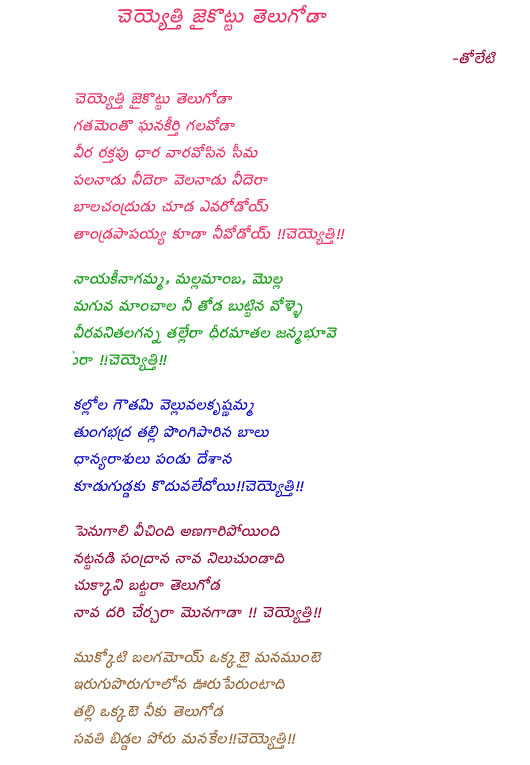 చెయ్యెత్తి జైకొట్టు తెలుగోడా
-తోలేటి
చెయ్యెత్తి జైకొట్టు తెలుగోడా
గతమెంతొ ఘనకీర్తి గలవోడా
వీర రక్తపు ధార వారవోసిన సీమ
పలనాడు నీదెరా వెలనాడు నీదెరా
బాలచంద్రుడు చూడ ఎవరోడోయ్
తాండ్రపాపయ్య కూడా నీవోడోయ్ !!చెయ్యెత్తి!!
నాయకీనాగమ్మ, మల్లమాంబ, మొల్ల
మగువ మాంచాల నీ తోడ బుట్టిన వోళ్ళె
వీరవనితలగన్న తల్లేరా ధీరమాతల జన్మభూవె
సురా !!చెయ్యెత్తి!!
కల్లోల గౌతమి వెల్లువలకృష్ణమ్మ
తుంగభద్ర తల్లి పొంగిపారిన బాలు
ధాన్యరాశులు పండు దేశాన
కూడుగుడ్డకు కొదువలేదోయి!!చెయ్యెత్తి!!
పెనుగాలి వీచింది అణగారిపోయింది
నట్టనడి సంద్రాన నావ నిలుచుండాది
చుక్కాని బట్టరా తెలుగోడ
నావ దరి చేర్చరా మొనగాడా !! చెయ్యెత్తి!!
ముక్కోటి బలగమోయ్ ఒక్కటై మనముంటె
ఇరుగుపొరుగూలోన ఊరుపేరుంటాది
తల్లి ఒక్కటె నీకు తెలుగోడ
సవతి బిడ్డల పోరు మనకేల!!చెయ్యెత్తి!!